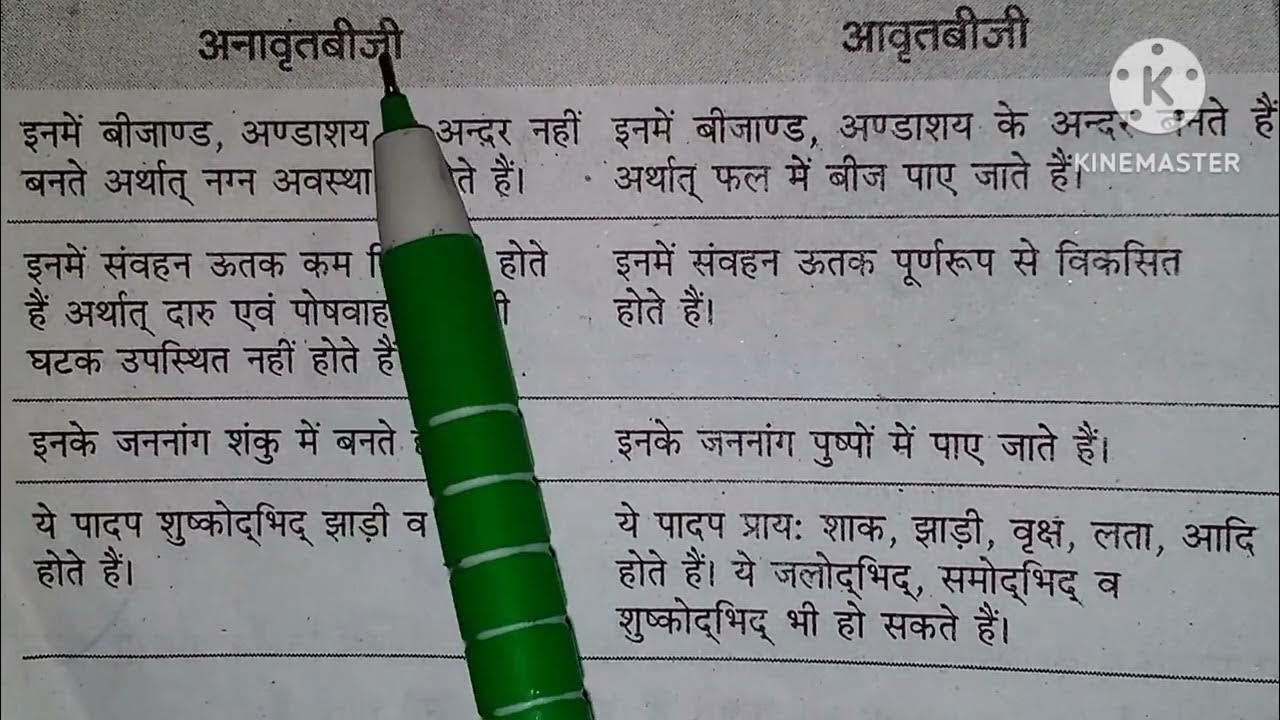 अनावृतबीजी
आवृतबीजी
इनमें बीजाण्ड, अण्डाशय अन्दर नहीं
बनते अर्थात् नग्न अवस्था हैं।
इनमें बीजाण्ड, अण्डाशय के अन्दर बनते हैं
अर्थात् फल में बीज पाए जाते हैं।
इनमें संवहन ऊतक कम होते
हैं अर्थात् दारु एवं
घटक उपस्थित नहीं होते हैं
इनमें संवहन ऊतक पूर्णरूप से विकसित
होते हैं।
इनके जननांग शंकु में बनते
इनके जननांग पुष्पों में पाए जाते हैं।
ये पादप शुष्कोद्‌भिद् झाड़ी व
होते हैं।
ये पादप प्राय: शाक, झाड़ी, वृक्ष, लता, आदि
होते हैं। ये जलोद्‌भिद्, समोद्‌भिद् व
शुष्कोद्‌भिद् भी हो सकते हैं।
K
KINEMASTER